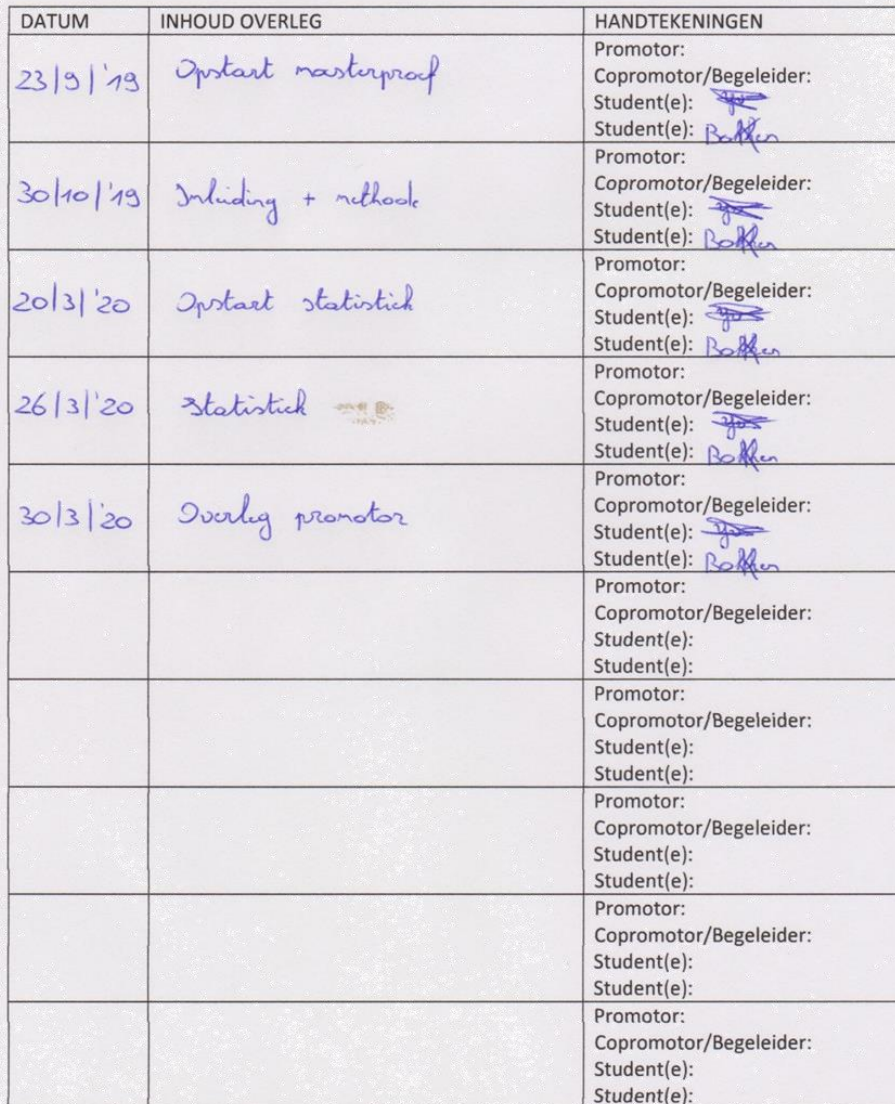 DATUM INHOUD OVERLEG HANDTEKENINGEN
Promotor:
23/9/'19 Opstart masterproef Copromotor/Begeleider:
Student(e):
Student(e):
Promotor:
Copromotor/Begeleider:
30/10/'19 Inleiding + methode Student(e):
Student(e):
Promotor:
20/3/'20 Opstart statistiek Copromotor/Begeleider:
Student(e):
Student(e):
Promotor:
26/3/'20 Statistiek Copromotor/Begeleider:
Student(e):
Student(e):
Promotor:
30/3/'20 Overleg promotor Copromotor/Begeleider:
Student(e):
Student(e):
Promotor:
Copromotor/Begeleider:
Student(e):
Student(e):
Promotor:
Copromotor/Begeleider:
Student(e):
Student(e):
Promotor:
Copromotor/Begeleider:
Student(e):
Student(e):
Promotor:
Copromotor/Begeleider:
Student(e):
Student(e):
Promotor:
Copromotor/Begeleider:
Student(e):
Student(e):